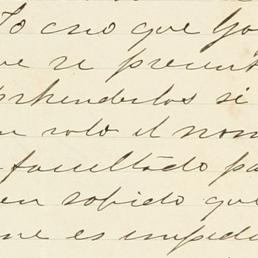 Yo creo que Go
ue se present
prhenderlos si
n solo el nom
facultado pa
en sabido que
me es impedi